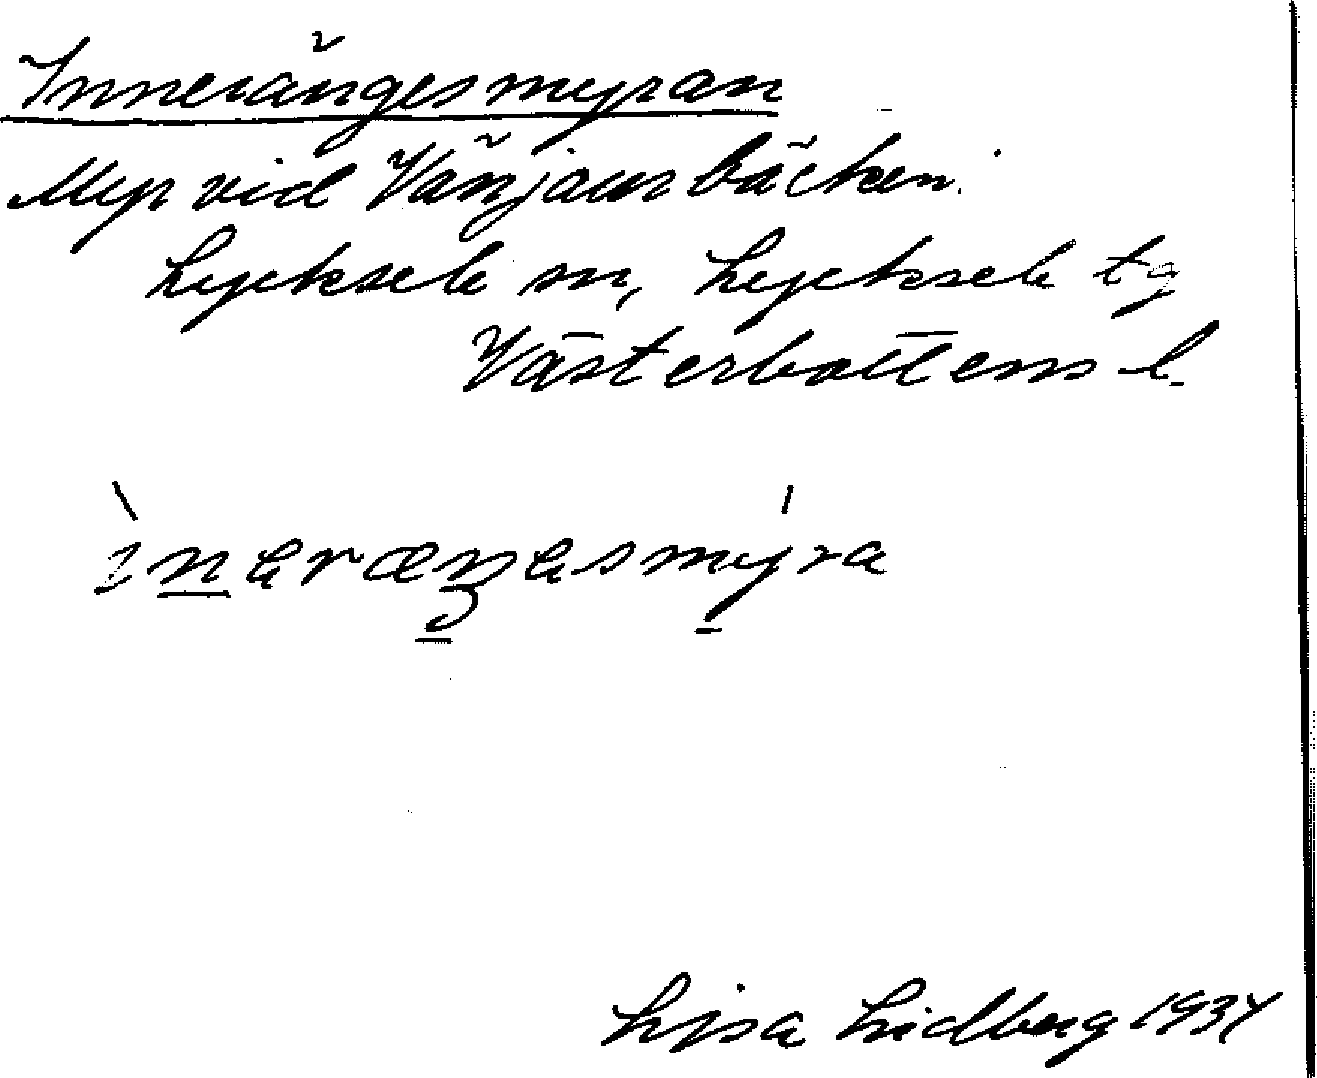 Innerängesmyran
Myr vid Vänjaurbäcken.
Lycksele sn, Lycksele tg
Västerbottens l.
Lisa Lidberg 1934